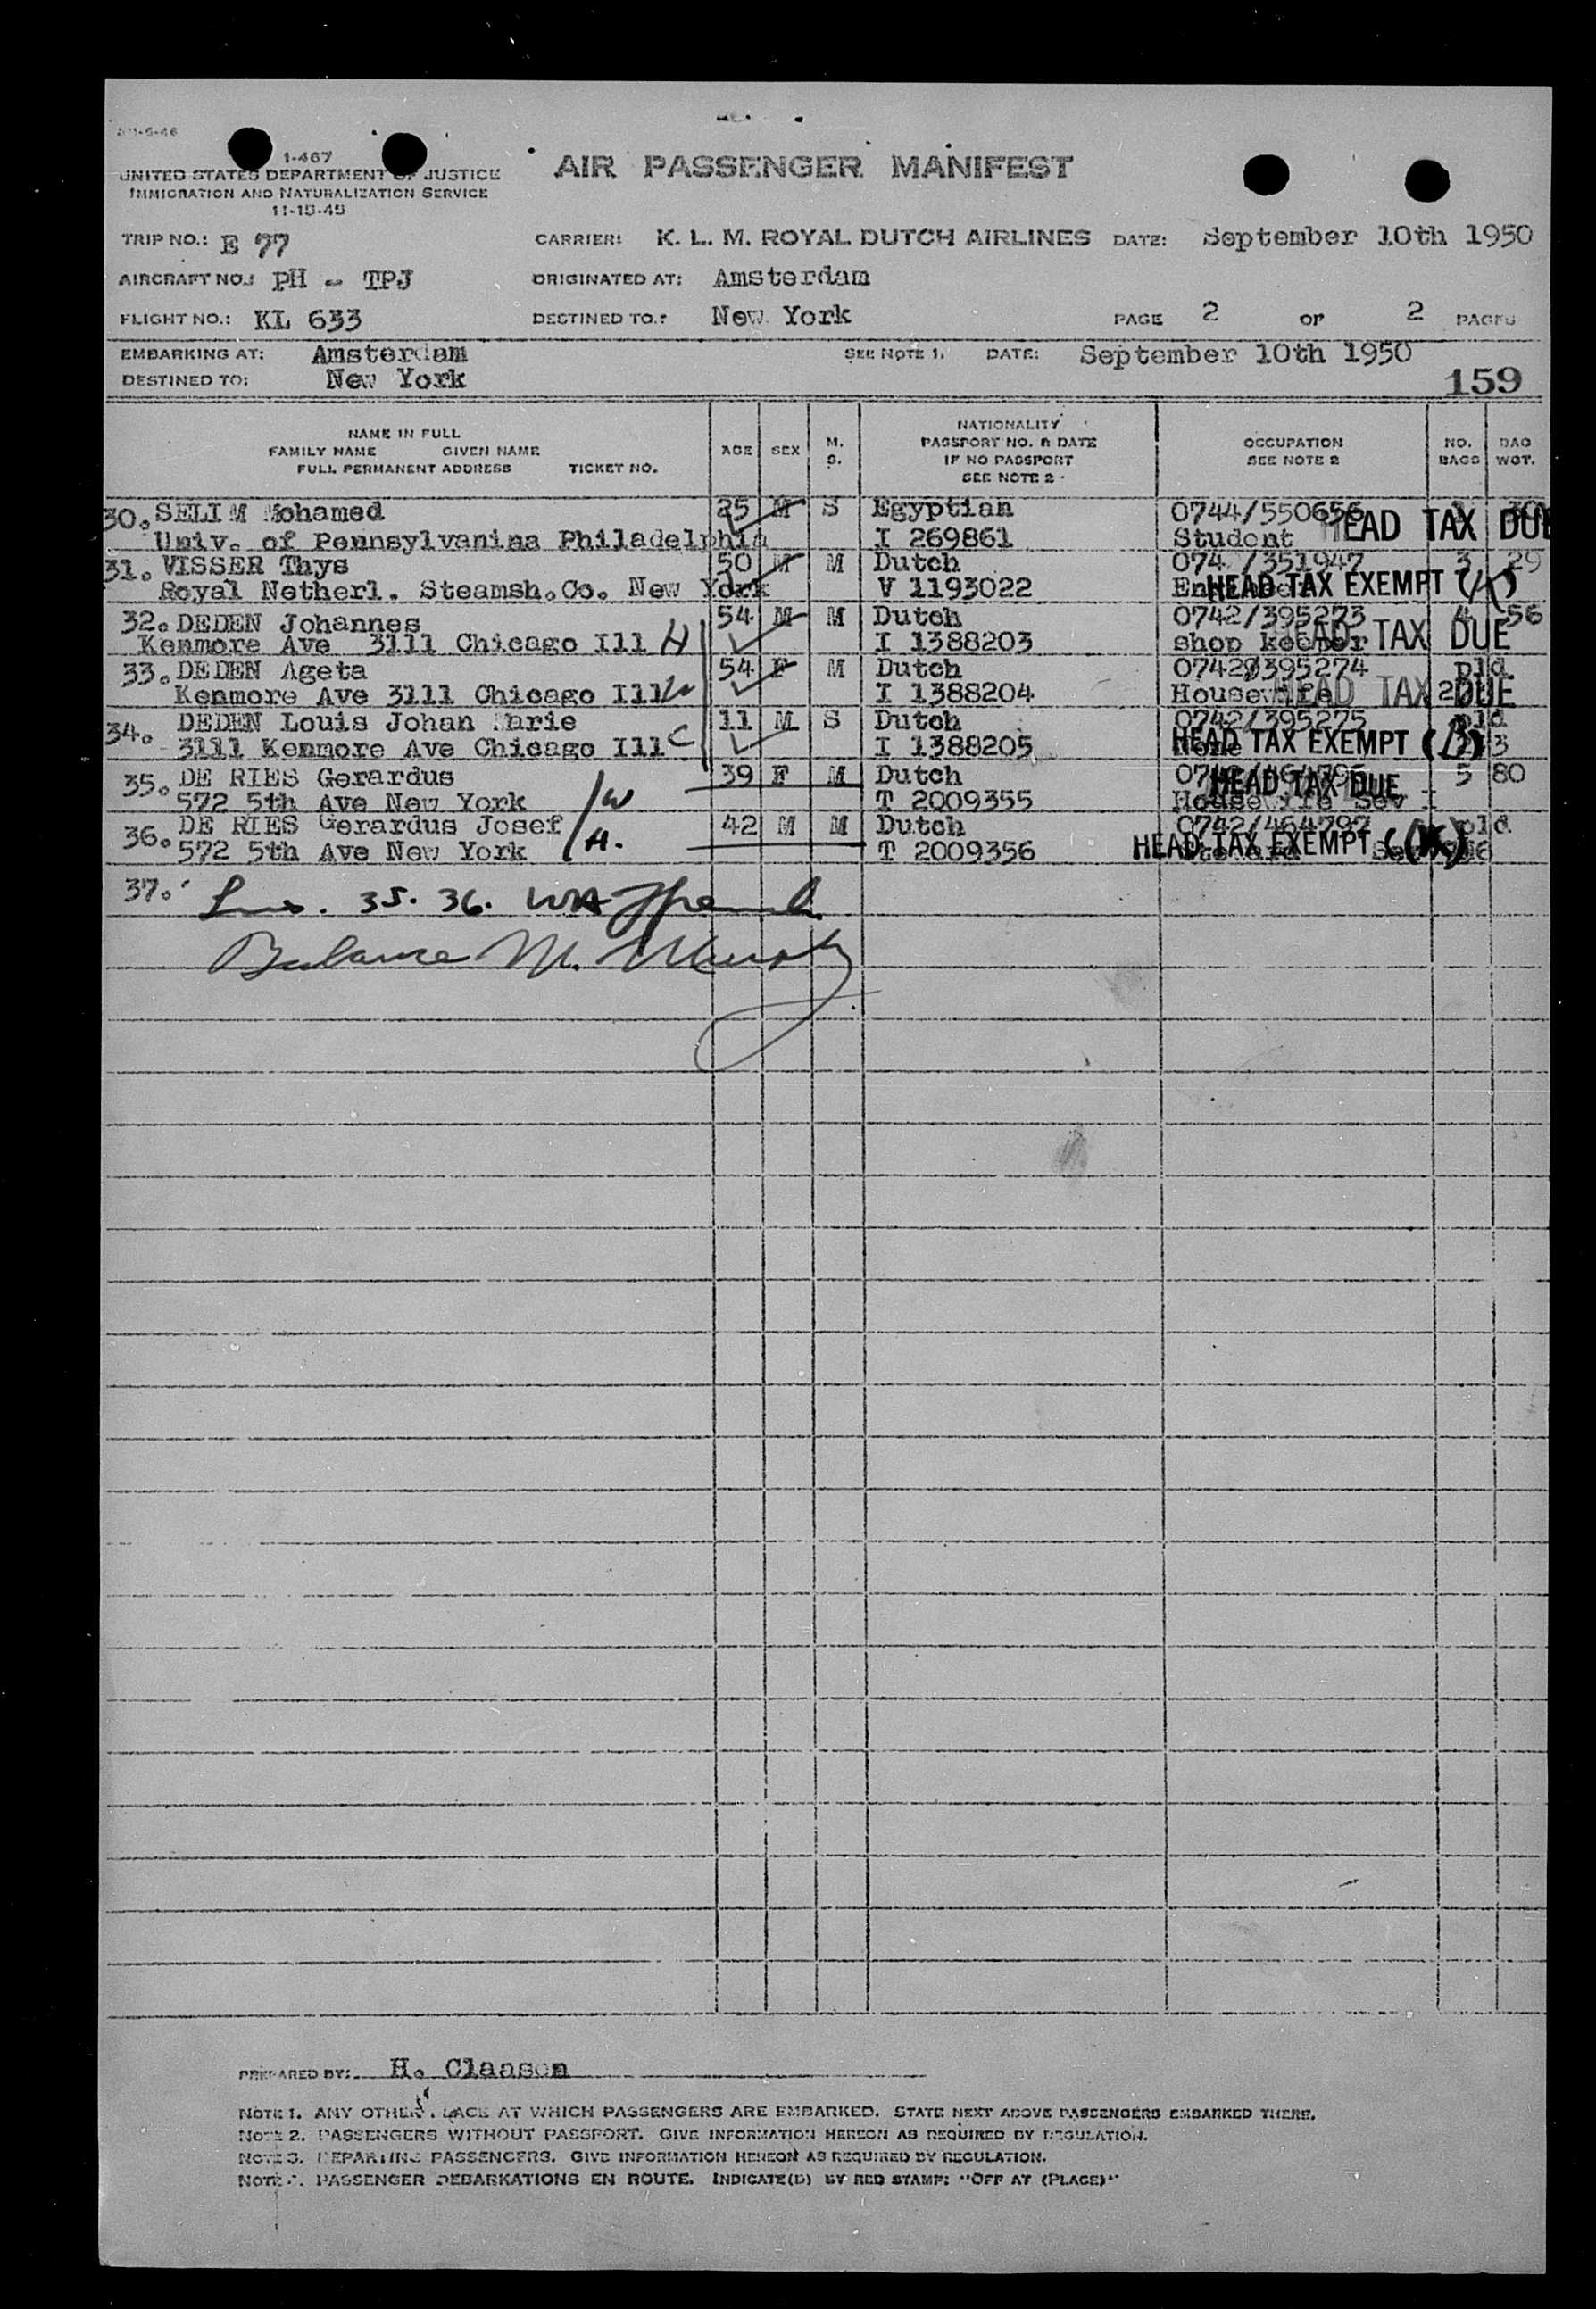 1-467
UNITED STATES DEPARTMENT OF JUSTICE
IMMIGRATION AND NATURALIZATION SERVICE
11-15-45
AIR PASSENGER MANIFEST
TRIP NO.: E 77 CARRIER: K. L. M. ROYAL DUTCH AIRLINES DATE: September 10th 1950
AIRCRAFT NO.: PH - TPJ ORIGINATED AT: Amsterdam
FLIGHT NO.: KL 633 DESTINED TO.: New York PAGE 2 OF 2 PAGES
EMBARKING AT: Amsterdam SEE NOTE 1. DATE: September 10th 1950
DESTINED TO: New York 159
NAME IN FULL
FAMILY NAME GIVEN NAME
FULL PERMANENT ADDRESS TICKET NO.
AGE SEX M. S.
NATIONALITY
PASSPORT NO. & DATE
IF NO PASSPORT
SEE NOTE 2
OCCUPATION
SEE NOTE 2
NO. BAGS
BAG WGT.
30. SELIM Mohamed 25 M S Egyptian 0744/550656 30
Univ. of Pennsylvanina Philadelphia I 269861 Student HEAD TAX DUE
31. VISSER Thys 50 M M Dutch 074 /351947 3 29
Royal Netherl. Steamsh.Co. New York V 1193022 HEAD TAX EXEMPT
32. DEDEN Johannes 54 M M Dutch 0742/395273 4 56
Kenmore Ave 3111 Chicago Ill H I 1388203 shop keeper HEAD TAX DUE
33. DEDEN Ageta 54 F M Dutch 0742/395274 pld
Kenmore Ave 3111 Chicago Ill W I 1388204 Housewife HEAD TAX DUE
34. DEDEN Louis Johan Marie 11 M S Dutch 0742/395275 pld
3111 Kenmore Ave Chicago Ill C I 1388205 None HEAD TAX EXEMPT
35. DE RIES Gerardus 39 F M Dutch 5 80
572 5th Ave New York W T 2009355 Housewife HEAD TAX DUE
36. DE RIES Gerardus Josef 42 M M Dutch 0742/464797 pld
572 5th Ave New York H. T 2009356 HEAD TAX EXEMPT
37. 35. 36.
Balance M. Murphy
PREPARED BY: H. Claasen
NOTE 1. ANY OTHER PLACE AT WHICH PASSENGERS ARE EMBARKED. STATE NEXT ABOVE PASSENGERS EMBARKED THERE.
NOTE 2. PASSENGERS WITHOUT PASSPORT. GIVE INFORMATION HEREON AS REQUIRED BY REGULATION.
NOTE 3. DEPARTING PASSENGERS. GIVE INFORMATION HEREON AS REQUIRED BY REGULATION.
NOTE 4. PASSENGER DEBARKATIONS EN ROUTE. INDICATE(D) BY RED STAMP: "OFF AT (PLACE)"